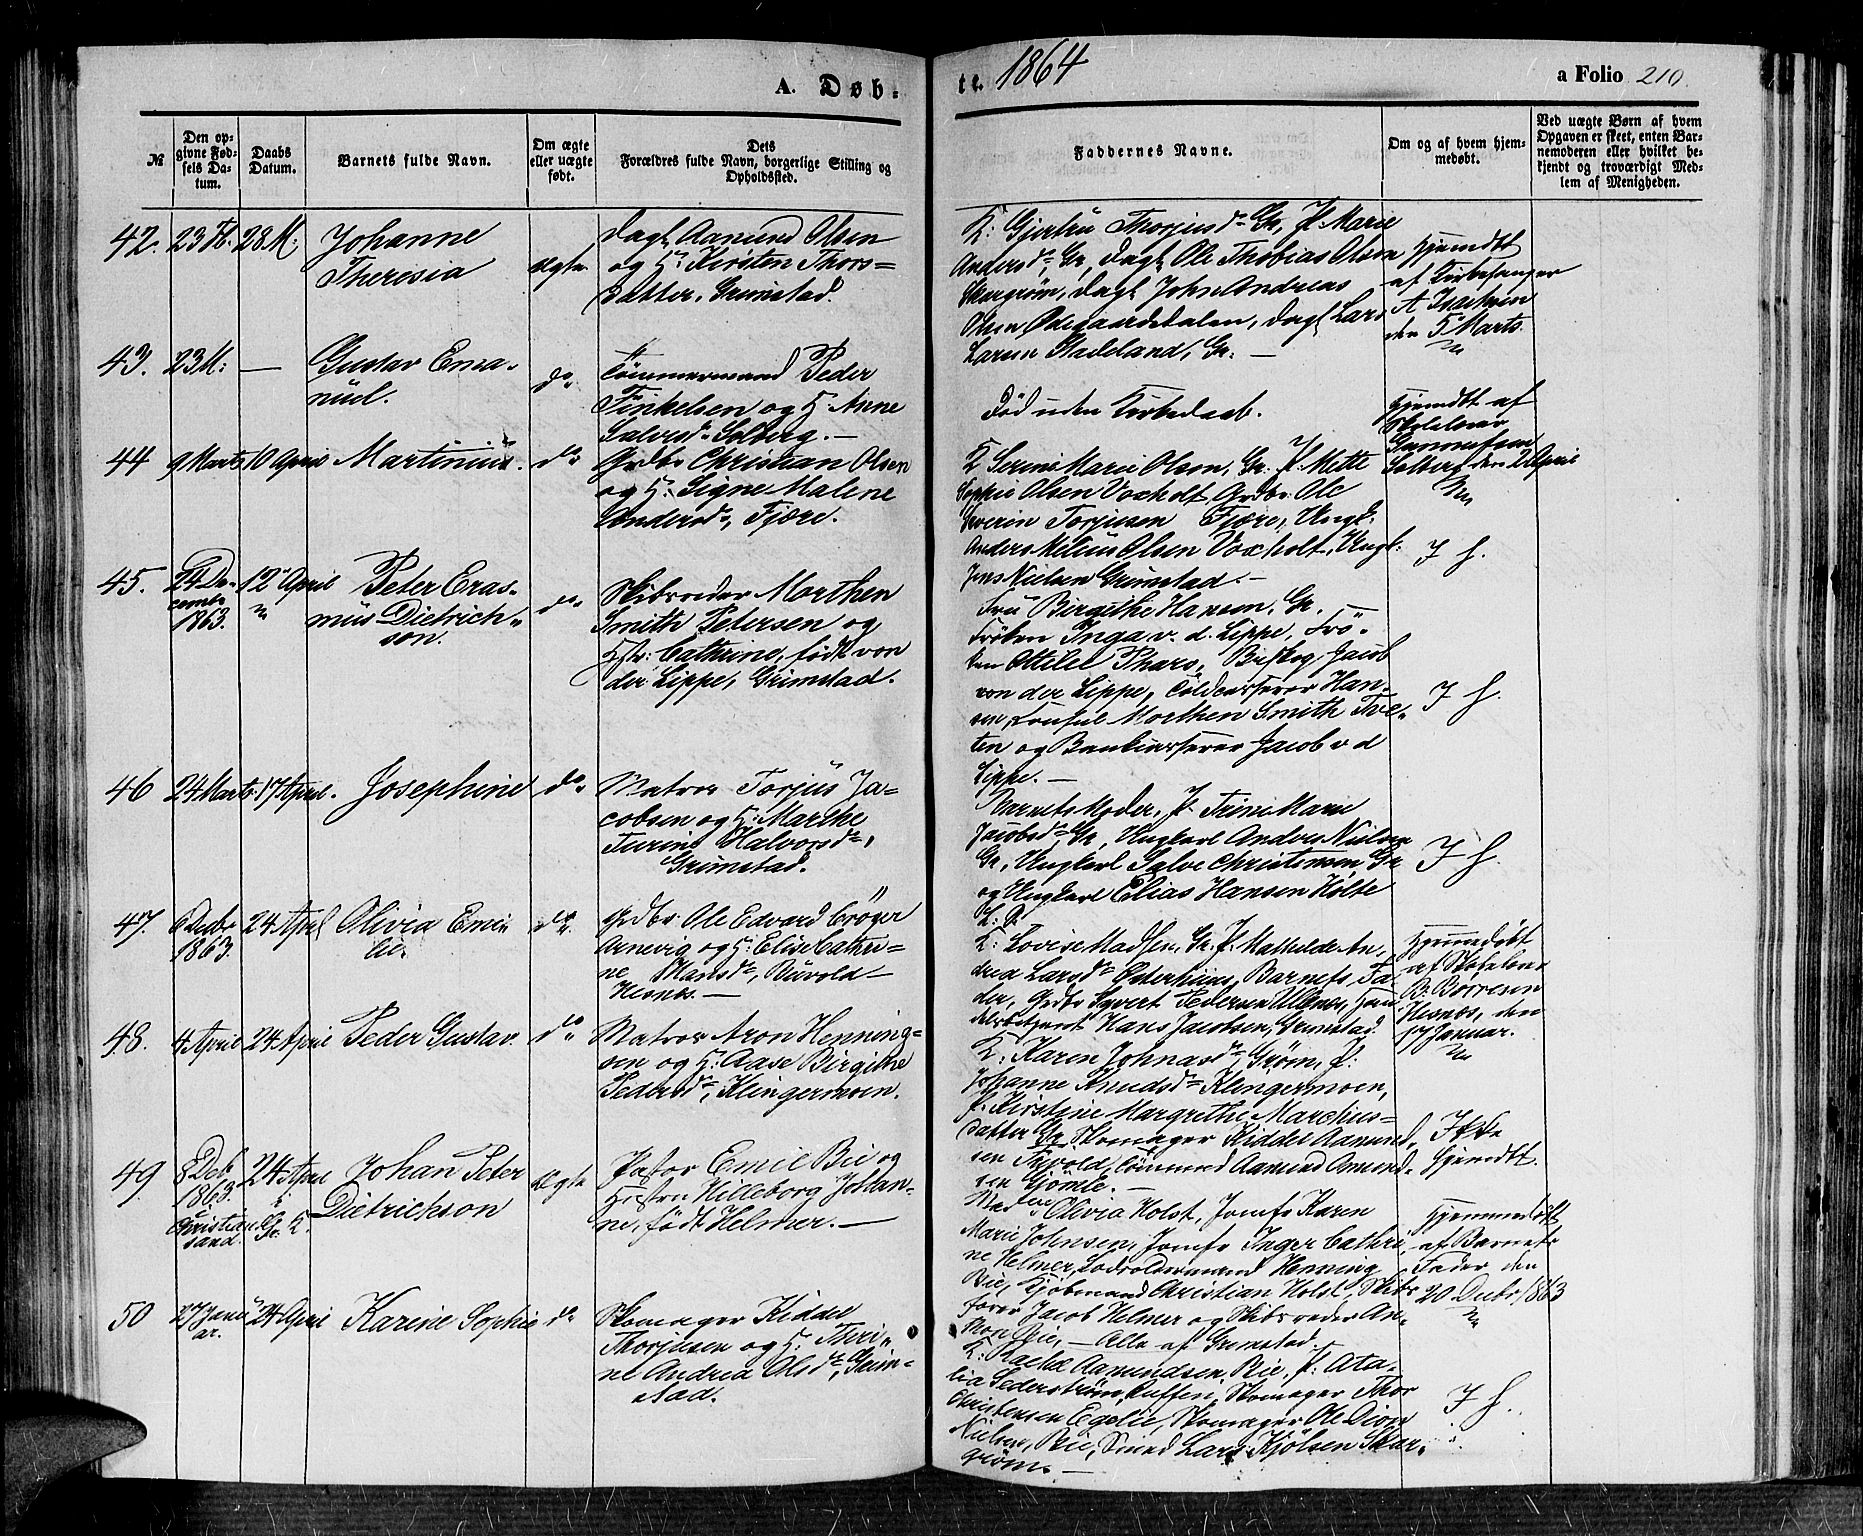 A. Døb-
te. 1864
a Folio 210.
№
Den op-
givne Fød-
sels Da-
tum.
Daabs
Datum.
Barnets fulde Navn.
Om ægte
eller uægte
født.
Dets
Forældres fulde Navn, borgerlige Stilling og
Opholdssted.
Faddernes Navne.
Om og af hvem hjem-
medøbt.
Ved uægte Børn af hvem
Opgaven er skeet, enten Bar-
nemoderen eller hvilket be-
kjendt og troværdigt Med-
lem af Menigheden.
42. 23 F. 28 M:
Johanne
Theresia
ægte
Dagl. Aamund Olsen
og H: Kirsten Thors=
datter. Grimstad.
K: Gjertru Thorjusd. Gr, P. Marie
Andersd, Gr, Dagl. Ole Thobias Olsen
Skargrøm, Dagl John Andreas
Olsen Ødegaardsdalen, Dagl Lars
Larsen Gr. —
Hjemdøbt
af Kirkesanger
A Isachsen
den 5 Marts.
43. 23 M: —
Gustav Ema-
nuel.
do
Tømmermand Peder
Finkelsen og H. Anne
Salvesd. Solberg. —
Død uden Kirkedaab.
Hjemdbt af
Skolelærer
Gunnufsen
Solberg den 2 April
44 9 Marts 10 April Martinius. do
Grdbr Christian Olsen
og H. Signe Malene
Andersd, Fjære.
K Serine Marie Olsen, Gr. P. Mette
Sophie Olsen Voxholt Grdbr. Ole
Severin Torjusen Fjære, Ungk.
Anders Nelius Olsen Voxholt, Ungk:
Jens Nielsen Grimstad. —
I H.
45. 24 De-
cembr
1863.
12 April
Peter Eras-
mus Dietrich-
son.
do
Skibsreder Morthen
Smith Petersen og
Hstr: Cathrine, født von
der Lippe, Grimstad.
Fru Birgithe Hansen, Gr. —
Frøken Inga v. d. Lippe, Frø-
ken Ottilie Phars, Biskop Jacob
von der Lippe, Toldcasserer Han-
sen, Konsul Morthen Smith Tve-
ten og Bankcasserer Jacob v d
Lippe. —
I H.
46 24 Marts 17 April. Josephine do
Matros Torjus Ja-
cobsen og H: Marthe
Turine Halvorsd,
Grimstad.
Barnets Moder, P. Trine Marie
Jacobsd Gr, Ungkarl Anders Nielsen
Gr, Ungkarl Salve Christensen Gr
og Ungkarl Elias Hansen Holte
L. S.
I H.
47. 6 Decbr
1863.
24 April Olivia Emi-
lie.
do.
Grdbr Ole Edvard Crøger
Arnevig og H: Elise Cathri=
ne Hansd, Ruvold
Hesnes. —
K: Lovise Madsen, Gr. P. Mathilde An-
drea Larsd Østerhuus, Barnets Fa-
der, Grdbr Syvert Pedersen Ullenes, Han-
delsbetjent Hans Jacobsen, Grimstad.
Hjemmedøbt
af Skolelærer
B. Børresen
Hesnes, den
17 Januar.
48. 4 April 24 April Peder Gustav. do
Matros Aron Henning=
sen og H: Aase Birgithe
Pedersd, Klingermoen.
K: Karen Johnasd, Grøm, P.
Johanne Knudsd Klingermoen,
P. Kirstine Margrethe Marchus=
datter Gr. Skomager Kiddel Aamund-
sen Frivold, Tømmrmd Aamund Amund-
sen Gjømle. —
Ikke
hjemdt.
49 8 Deb
1863.
i
Christian-
sand.
24 April
i
Gr. K.
Johan Peter
Dietrichson
ægte
Pastor Emil Bie og
Hustru Hilleborg Johan-
ne, født Helmer. —
Madme Olivia Holst, Jomfr Karen
Marie Johnsen, Jomfr Inger Cathri-
ne Helmer, Lodsoldermand Henning
Bie, Kjøbmand Christian Holst, Skibs-
fører Jacob Helmer og Skibsreder An-
ton Bie, — Alle af Grimstad. —
Hjemmedøbt
af Barnets
Fader den
20 Decbr 1863
50 27 Janu-
ar.
24 April Karine Sophie do
Skomager Kiddel
Thorjusen og H: Thri-
ne Andrea Olsd, Grim-
stad.
K: Rachel Aamundsen, Bie, P: Ata-
lia Sederstrøm, Skomager Thor
Christensen Egelie, Skomager Ole Dion
Nielsen, Bie, Smed Lars Kjølsen Skar-
grøm. —
I H.